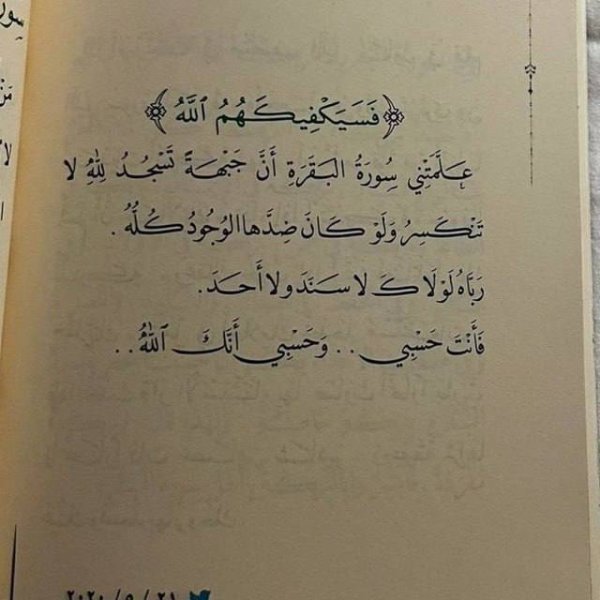 ﴿فَسَيَكْفِيكَهُمُ ٱللَّهُ﴾
عَلَّمَتْنِي سُورَةُ البَقَرَةِ أَنَّ جَبْهَةً تَسْجُدُ لِلَّهِ لا
تَنْكَسِرُ وَلَوْ كَانَ ضِدَّها الوُجُودُ كُلُّهُ .
رَبَّاهُ لَوْلَاكَ لا سَنَدَ ولا أَحَدَ.
فَأَنْتَ حَسْبِي .. وَحَسْبِي أَنَّكَ ٱللَّهُ..